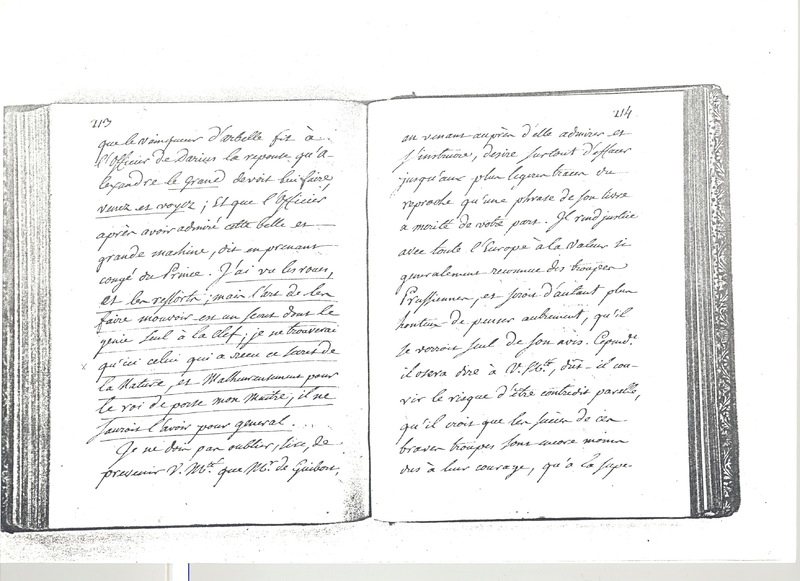 213
que le vainqueur d'arbelle fit à
l'Officier de Darius la reponse qu'A-
lexandre le Grand devoit lui faire,
venez et voyez; Et que l'Officier
après avoir admiré cette belle et
grande machine, dit en prenant
congé du Prince. J'ai vu les roues,
et les ressorts; mais l'art de les
faire mouvoir est un secret dont le
genie seul a la clef; je ne trouverai
qu'ici celui qui a reçu ce secret de
la Nature, et Malheureusement pour
le roi de perse mon Maitre; il ne
sauroit l'avoir pour general...
Je ne dois pas oublier, Sire, de
prevenir V. Mté. que Mr. de Guibert,
214
en venant auprès d'elle admirer et
s'instruire, desire surtout d'effacer
jusqu'aux plus legeres traces du
reproche qu'une phrase de son livre
a merité de votre part. Il rend justice
avec toute l'Europe à la valeur si
generalement reconnue des troupes
Prussiennes, et seroit d'autant plus
honteux de penser autrement, qu'il
se verroit seul de son avis. Cepend.t
il osera dire à V. Mté, dût-il cou-
rir le risque d'être contredit par elle,
qu'il croit que les succès de ces
braves troupes sont encore moins
dus à leur courage, qu'à la supe-